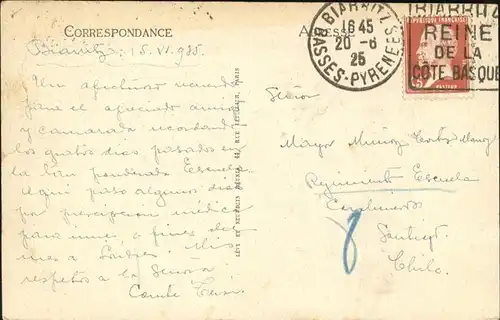 CORRESPONDANCE
ADRESSE
Biarritz 15.VI.925.
BIARRITZ
BASSES-PYRENEES
16 45
20 - 6
25
BIARRITZ
REINE
DE LA
CÔTE BASQUE
RÉPUBLIQUE FRANÇAISE
PASTEUR
Un afectuoso recuerdo
para el apreciado amigo
y camarada recordando
los gratos dias pasados en
la tan ponderada Escuela.
Aqui paso algunos dias
por prescripcion medica
para irme, a fines de
mes a Londres. Mis
respetos a la Señora
LÉVY ET NEURDEIN RÉUNIS, 44, RUE LETELLIER, PARIS
Señor
Mayor Muñoz
Regimiento Escuela
Carabineros
Santiago
Chile.
8